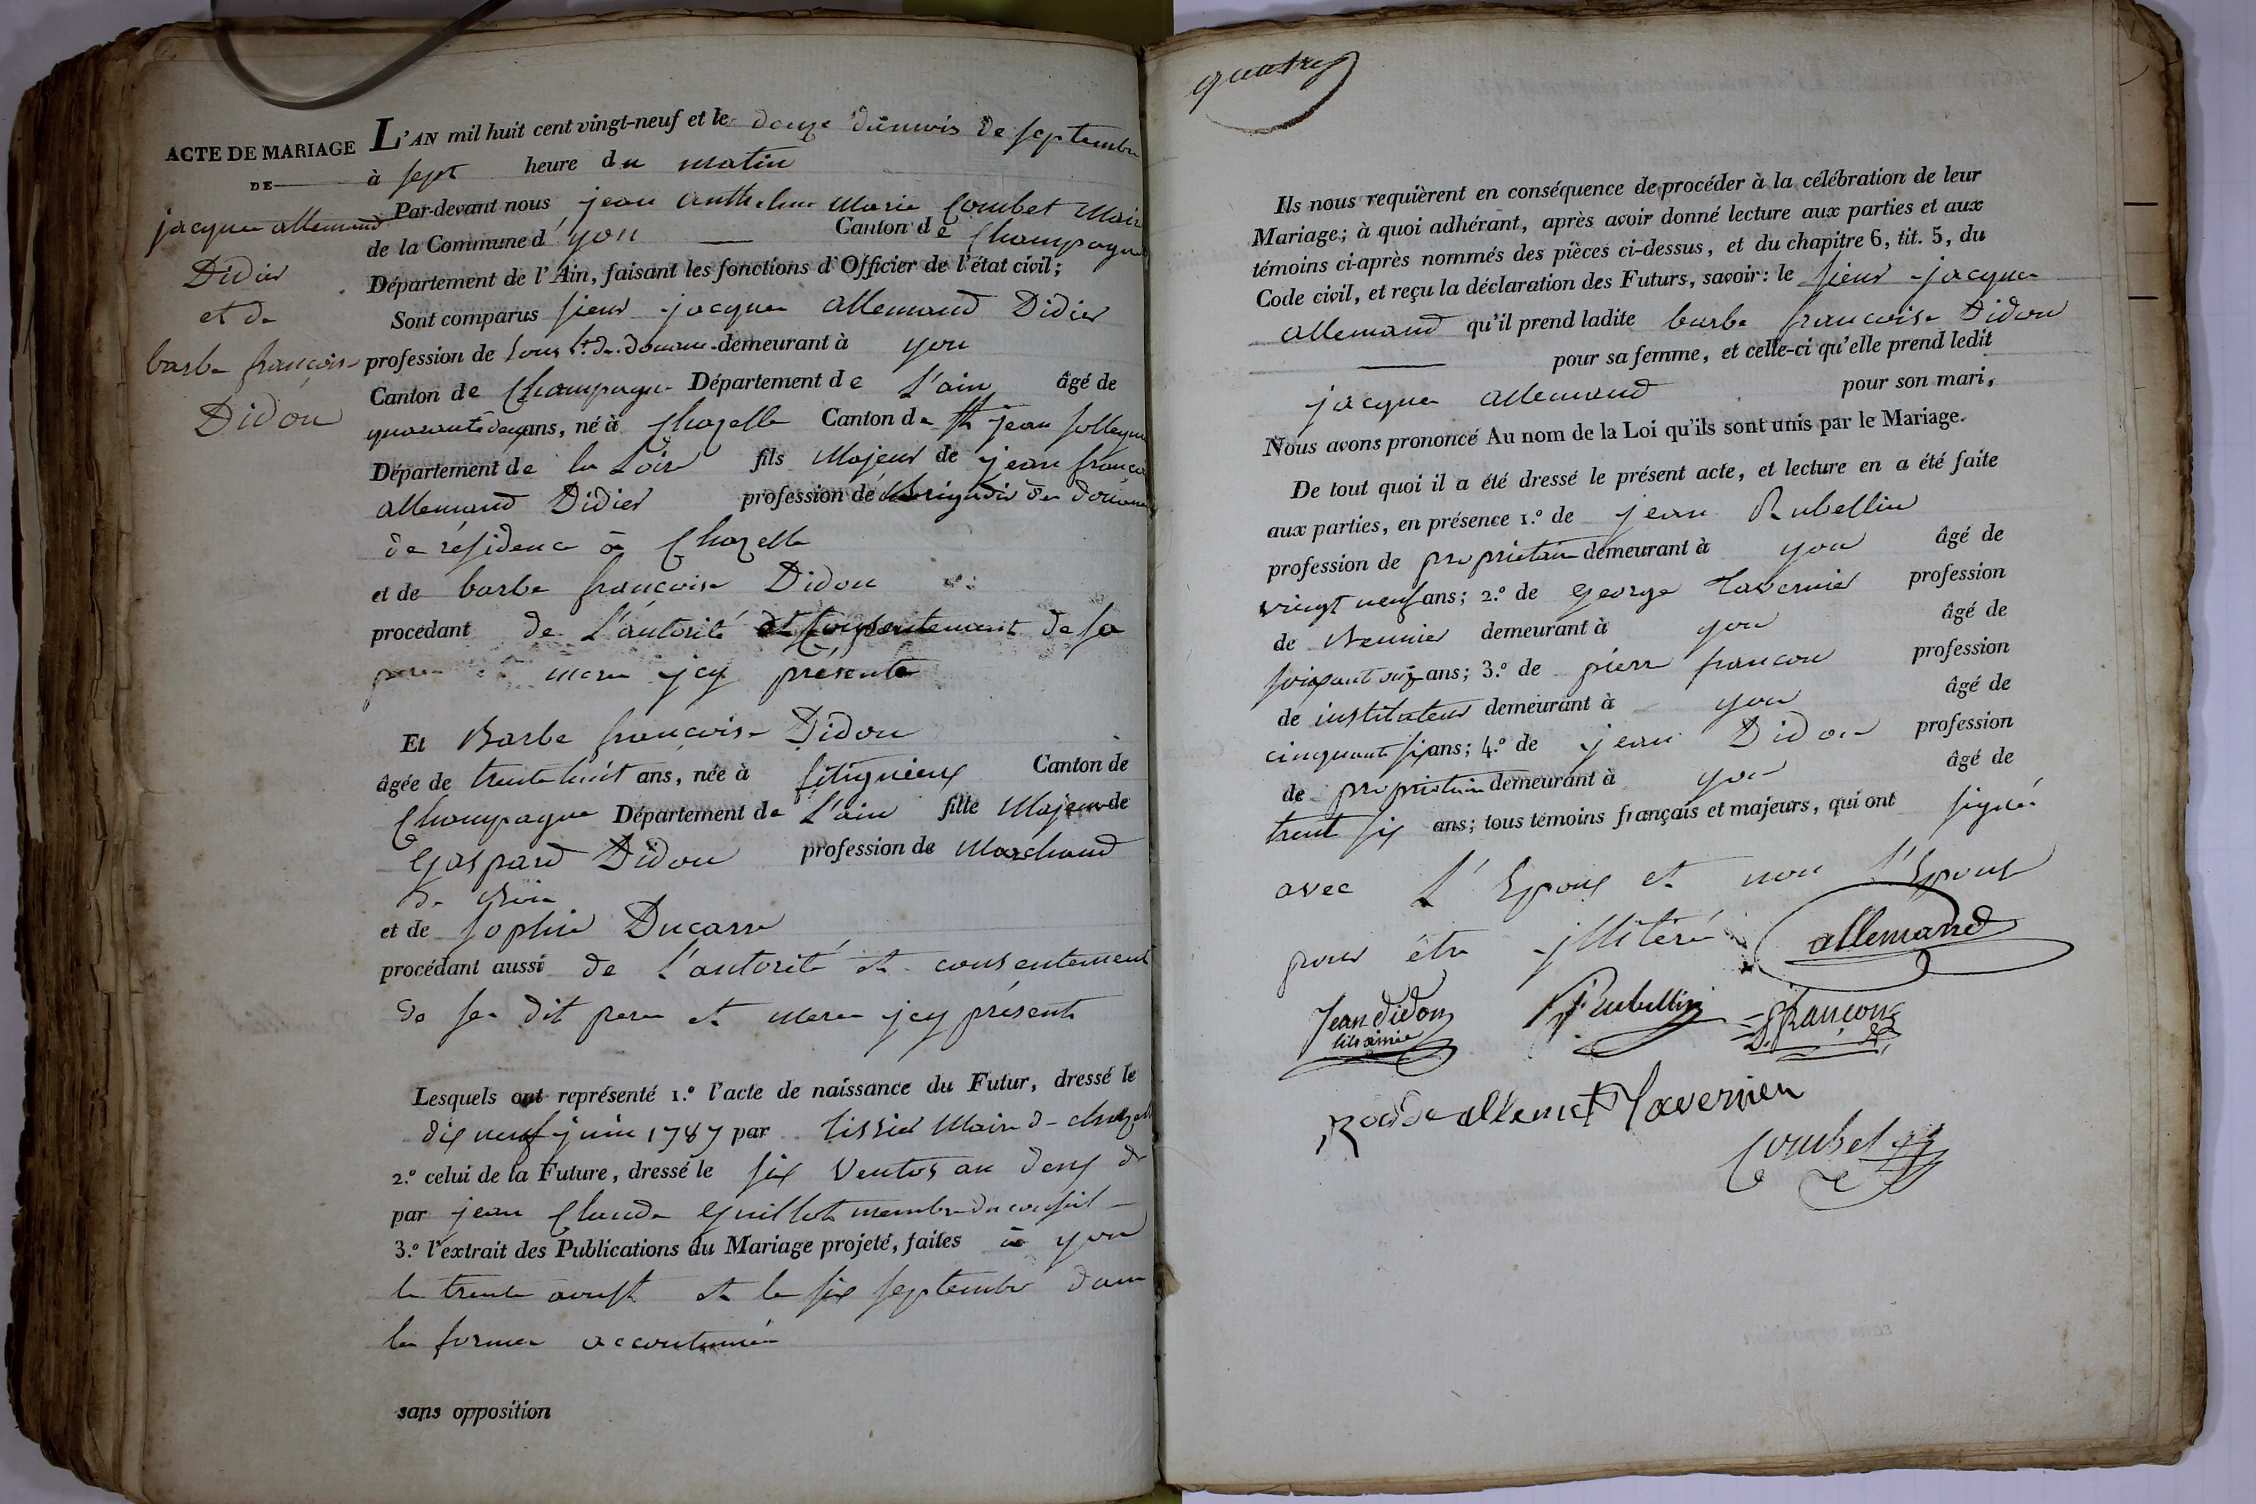 ACTE DE MARIAGE
DE
jacques allemand
Didier
et de
barbe françoise
Didon
L'AN mil huit cent vingt-neuf et le douze du mois de septembre
à sept heure du matin
Par-devant nous jean anthelme Marie Combet Maire
de la Commune d'yon Canton de Champagne
Département de l'Ain, faisant les fonctions d'Officier de l'état civil;
Sont comparus sieur jacques allemand Didier
profession de sous Lt. de douane demeurant à yon
Canton de Champagne Département de L'ain âgé de
quarante deux ans, né à Chazelle Canton de St jean solleymieu
Département de la Loire fils Majeur de jean françois
allemand Didier profession de brigadier des douanes
de résidence à Chazelle
et de barbe françoise Didon
procédant de L'autorité et consentement de sa
mere jcy présente
Et Barbe françoise Didon
âgée de trente huit ans, née à fitignieux Canton de
Champagne Département de L'ain fille Majeure de
Gaspard Didon profession de Marchand
de
et de sophie Ducarre
procédant aussi de L'autorité et consentement
de ses dit pere et mere jcy présent
Lesquels ont représenté 1.° l'acte de naissance du Futur, dressé le
dix neuf juin 1787 par tissier Maire de chazelle
2.° celui de la Future, dressé le six Ventos an deux de
par jean Claude Guillot membre du conseil
3.° l'extrait des Publications du Mariage projeté, faites à yon
le trente aoust et le six septembre dans
les formes accoutumées
sans opposition
quatre
Ils nous requièrent en conséquence de procéder à la célébration de leur
Mariage; à quoi adhérant, après avoir donné lecture aux parties et aux
témoins ci-après nommés des pièces ci-dessus, et du chapitre 6, tit. 5, du
Code civil, et reçu la déclaration des Futurs, savoir: le sieur jacques
allemand qu'il prend ladite barbe francoise Didon
pour sa femme, et celle-ci qu'elle prend ledit
jacques allemand pour son mari,
Nous avons prononcé Au nom de la Loi qu'ils sont unis par le Mariage.
De tout quoi il a été dressé le présent acte, et lecture en a été faite
aux parties, en présence 1.° de jean Rubellin
profession de propriétaire demeurant à yon âgé de
vingt neuf ans; 2.° de George tavernier profession
de demeurant à yon âgé de
soixant ans; 3.° de pierre francon profession
de instituteur demeurant à yon âgé de
cinquante six ans; 4.° de jean Didon profession
de propriétaire demeurant à yon âgé de
trent six ans; tous témoins français et majeurs, qui ont signés
avec L'Epoux et non L'Epouse
pour être jllitéré
allemand
Jean didon
fils ainé
Rubellin
françon
Tavernier
Combet